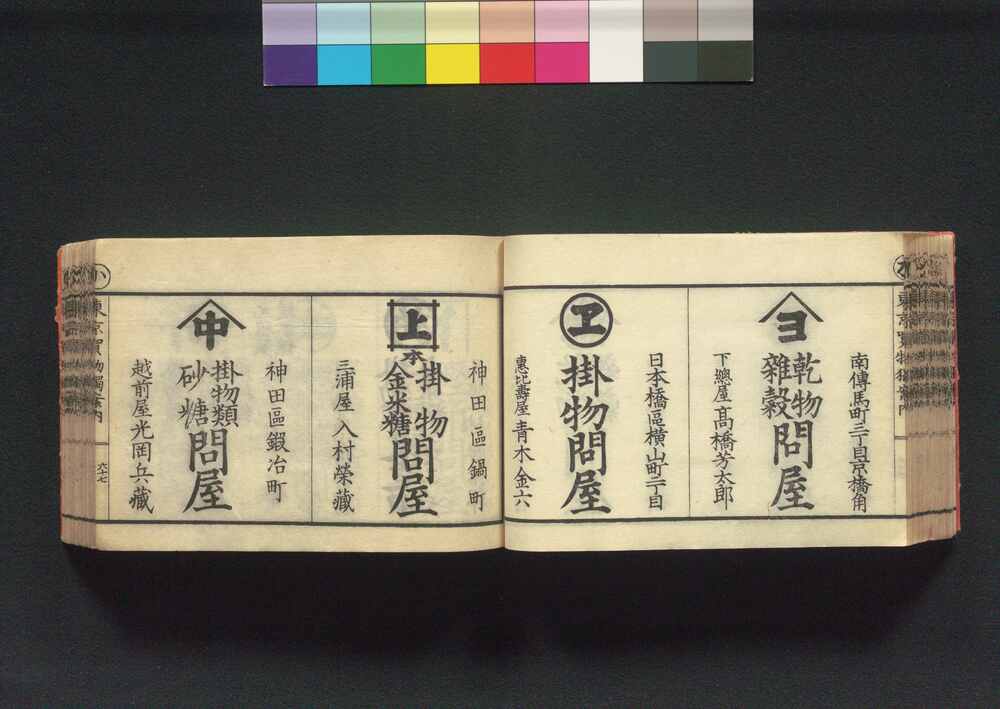 南傳馬町三丁目京橋角
ヨ
乾物
雜穀
問屋
下總屋 髙橋芳太郎
日本橋區横山町二丁目
ヱ
掛物問屋
惠比壽屋 青木金六
神田區鍋町
上
本
掛物
金米糖
問屋
三浦屋 入村榮藏
神田區鍛冶町
中
掛物類
砂糖
問屋
越前屋光岡兵藏